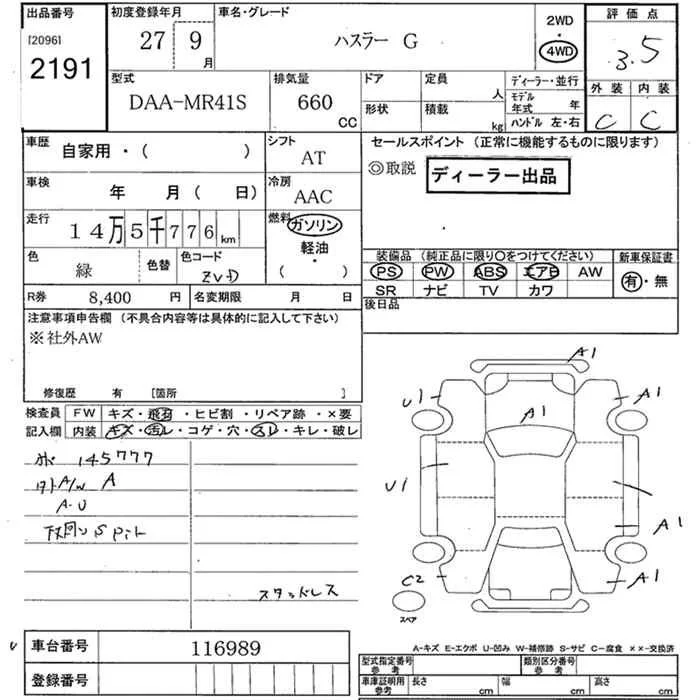 出品番号
[2096]
2191
初度登録年月
27 9
月
車名・グレード
ハスラー G
2WD
・
4WD
評価点
3.5
型式
DAA-MR41S
排気量
660
CC
ドア
定員
人
形状
積載
kg
ディーラー・並行
モデル
年式 年
ハンドル 左・右
外装 内装
C C
車歴
自家用・( )
シフト
AT
車検
年 月( 日)
冷房
AAC
走行
14万5千776km
燃料
ガソリン
軽油
・
( )
色
緑
色替
色コード
ZVD
R券 8,400 円
名変期限 月 日
セールスポイント (正常に機能するものに限ります)
◎取説
ディーラー出品
装備品 (純正品に限り○をつけてください)
PS PW ABS エアB AW
SR ナビ TV カワ
新車保証書
有・無
後日品
注意事項申告欄 (不具合内容等は具体的に記入して下さい)
※社外AW
修復歴 有 [箇所 ]
検査員
記入欄
FW キズ・飛石・ヒビ割・リペア跡・×要
内装 キズ・汚レ・コゲ・穴・スレ・キレ・破レ
145777
A/W A
A・U
下回り S
スタッドレス
A1
U1
A1
A1
U1
A1
C2
A1
スペア
車台番号 116989
登録番号
A-キズ E-エクボ U-凹み W-補修跡 S-サビ C-腐食 ××-交換済
型式指定番号
参考
類別区分番号
参考
車庫証明用
参考
長さ cm
幅 cm
高さ cm